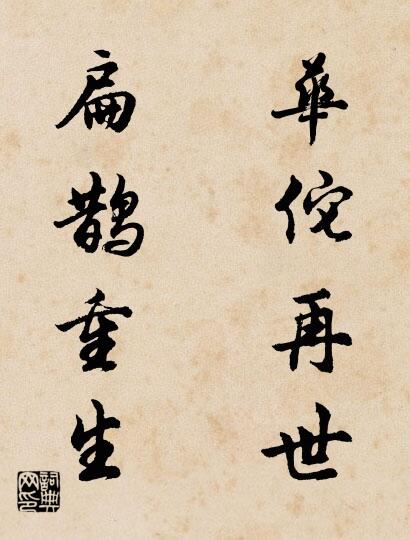 華佗再世
扁鵲重生
詞典網印